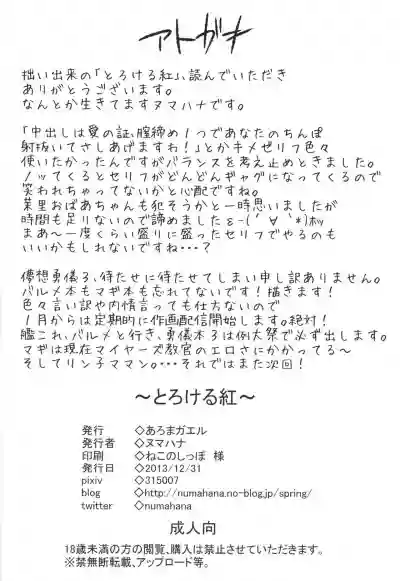 アトガキ
拙い出来の「とろける紅」、読んでいただき
ありがとうございます。
なんとか生きてますヌマハナです。
「中出しは愛の証、膣締め1つであなたのちんぽ
射抜いてさしあげますわ!」とかキメゼリフ色々
使いたかったんですがバランスを考え止めときました。
ノッてくるとセリフがどんどんギャグになってくるので
笑われちゃってないかと心配ですね。
菜里おばあちゃんも犯そうかと一時思いましたが
時間も足りないので諦めました ε-(´∀`*)ホッ
まあ〜一度くらい盛りに盛ったセリフでやるのも
いいかもしれないですね・・・?
儚想勇儀3、待たせに待たせてしまい申し訳ありません。
パルメ本もマギ本も忘れてないです!描きます!
色々言い訳や内情言っても仕方ないので
1月からは定期的に作画配信開始します。絶対!
艦これ、パルメと行き、勇儀本3は例大祭で必ず出します。
マギは現在マイヤーズ教官のエロさにかかってる〜
そしてリン子ママン。・・・それではまた次回!
〜とろける紅〜
発行 ◇あろまガエル
発行者 ◇ヌマハナ
印刷 ◇ねこのしっぽ 様
発行日 ◇2013/12/31
pixiv ◇315007
blog ◇http://numahana.no-blog.jp/spring/
twitter ◇numahana
成人向
18歳未満の方の閲覧、購入は禁止させていただきます。
※禁無断転載、アップロード等。